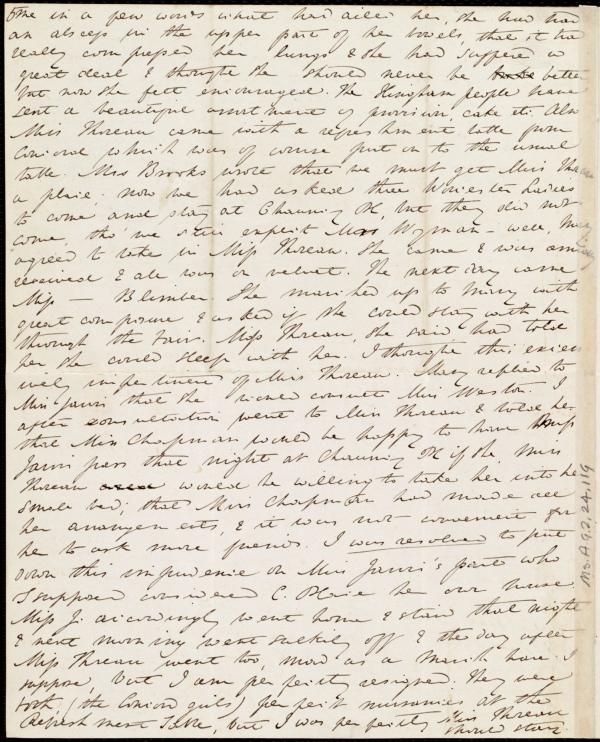 me in a few words what had ailed her, she had had
an abscess in the upper part of her bowels, that it had
really compressed her lungs & she had suffered a
great deal & thought she should never be better
but now she felt encouraged. The Hingham people have
sent a beautiful assortment of provision, cake etc. Also
Miss Thoreau came with a refreshment table from
Concord which was of course put on to the usual
table. Mrs Brooks wrote that we must get Miss Thoreau
a place; now we had asked three Worcester ladies
to come and stay at Chauncy Pl, but they did not
come, tho' we still expect Mrs Wyman - well, Mary
agreed to take in Miss Thoreau. She came & was
received & all was on velvet. The next day came
Miss — Blimber. She marched up to Mary with
great composure & asked if she could stay with her
through the Fair. Miss Thoreau, she said had told
her she could sleep with her. I thought this excess
ively impertinent of Miss Thoreau. Mary replied to
Miss Jarvis that she would consult Miss Weston. I
after consultation went to Miss Threau & told her
that Miss Chapman would be happy to have Miss
Jarvis pass that night at Chauncy Pl if she, Miss
Thoreau would be willing to take her into her
small bed; that Miss Chapman had made all
her arrangements, & it was not convenient for
her to ask more friends. I was resolved to put
down this impudence on Miss Jarvis's part who
I supposed considered C. Place her own house
Miss J. accordingly went home & staid that night
& next morning went sulkily off & the day after
Miss Threau went too, mad as a March hare I
suppose, but I am perfectly resigned. They were
both, (the Concord girls) perfect nuisances at the
Refreshment Table, but I was perfectly Miss Threau
should stay.
Ms.A.9.2.24.119